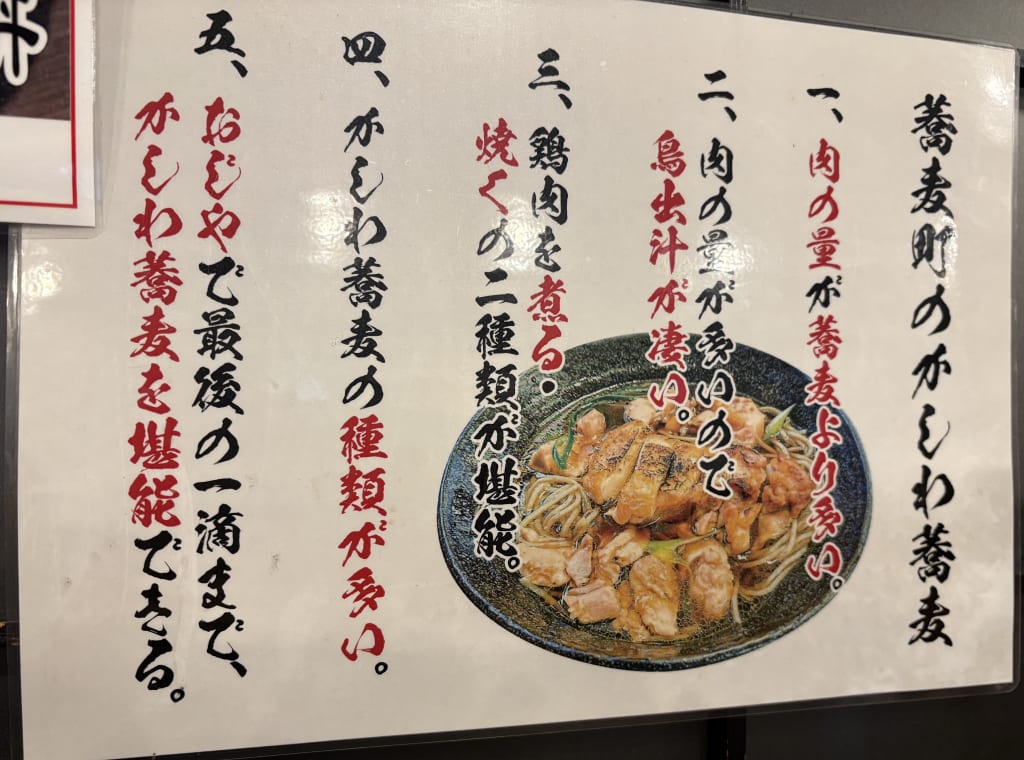 蕎麦町のかしわ蕎麦
一、肉の量が蕎麦より多い。
二、肉の量が多いので
鳥出汁が凄い。
三、鶏肉を煮る・
焼くの二種類が堪能。
四、かしわ蕎麦の種類が多い。
五、おじやで最後の一滴まで、
かしわ蕎麦を堪能できる。